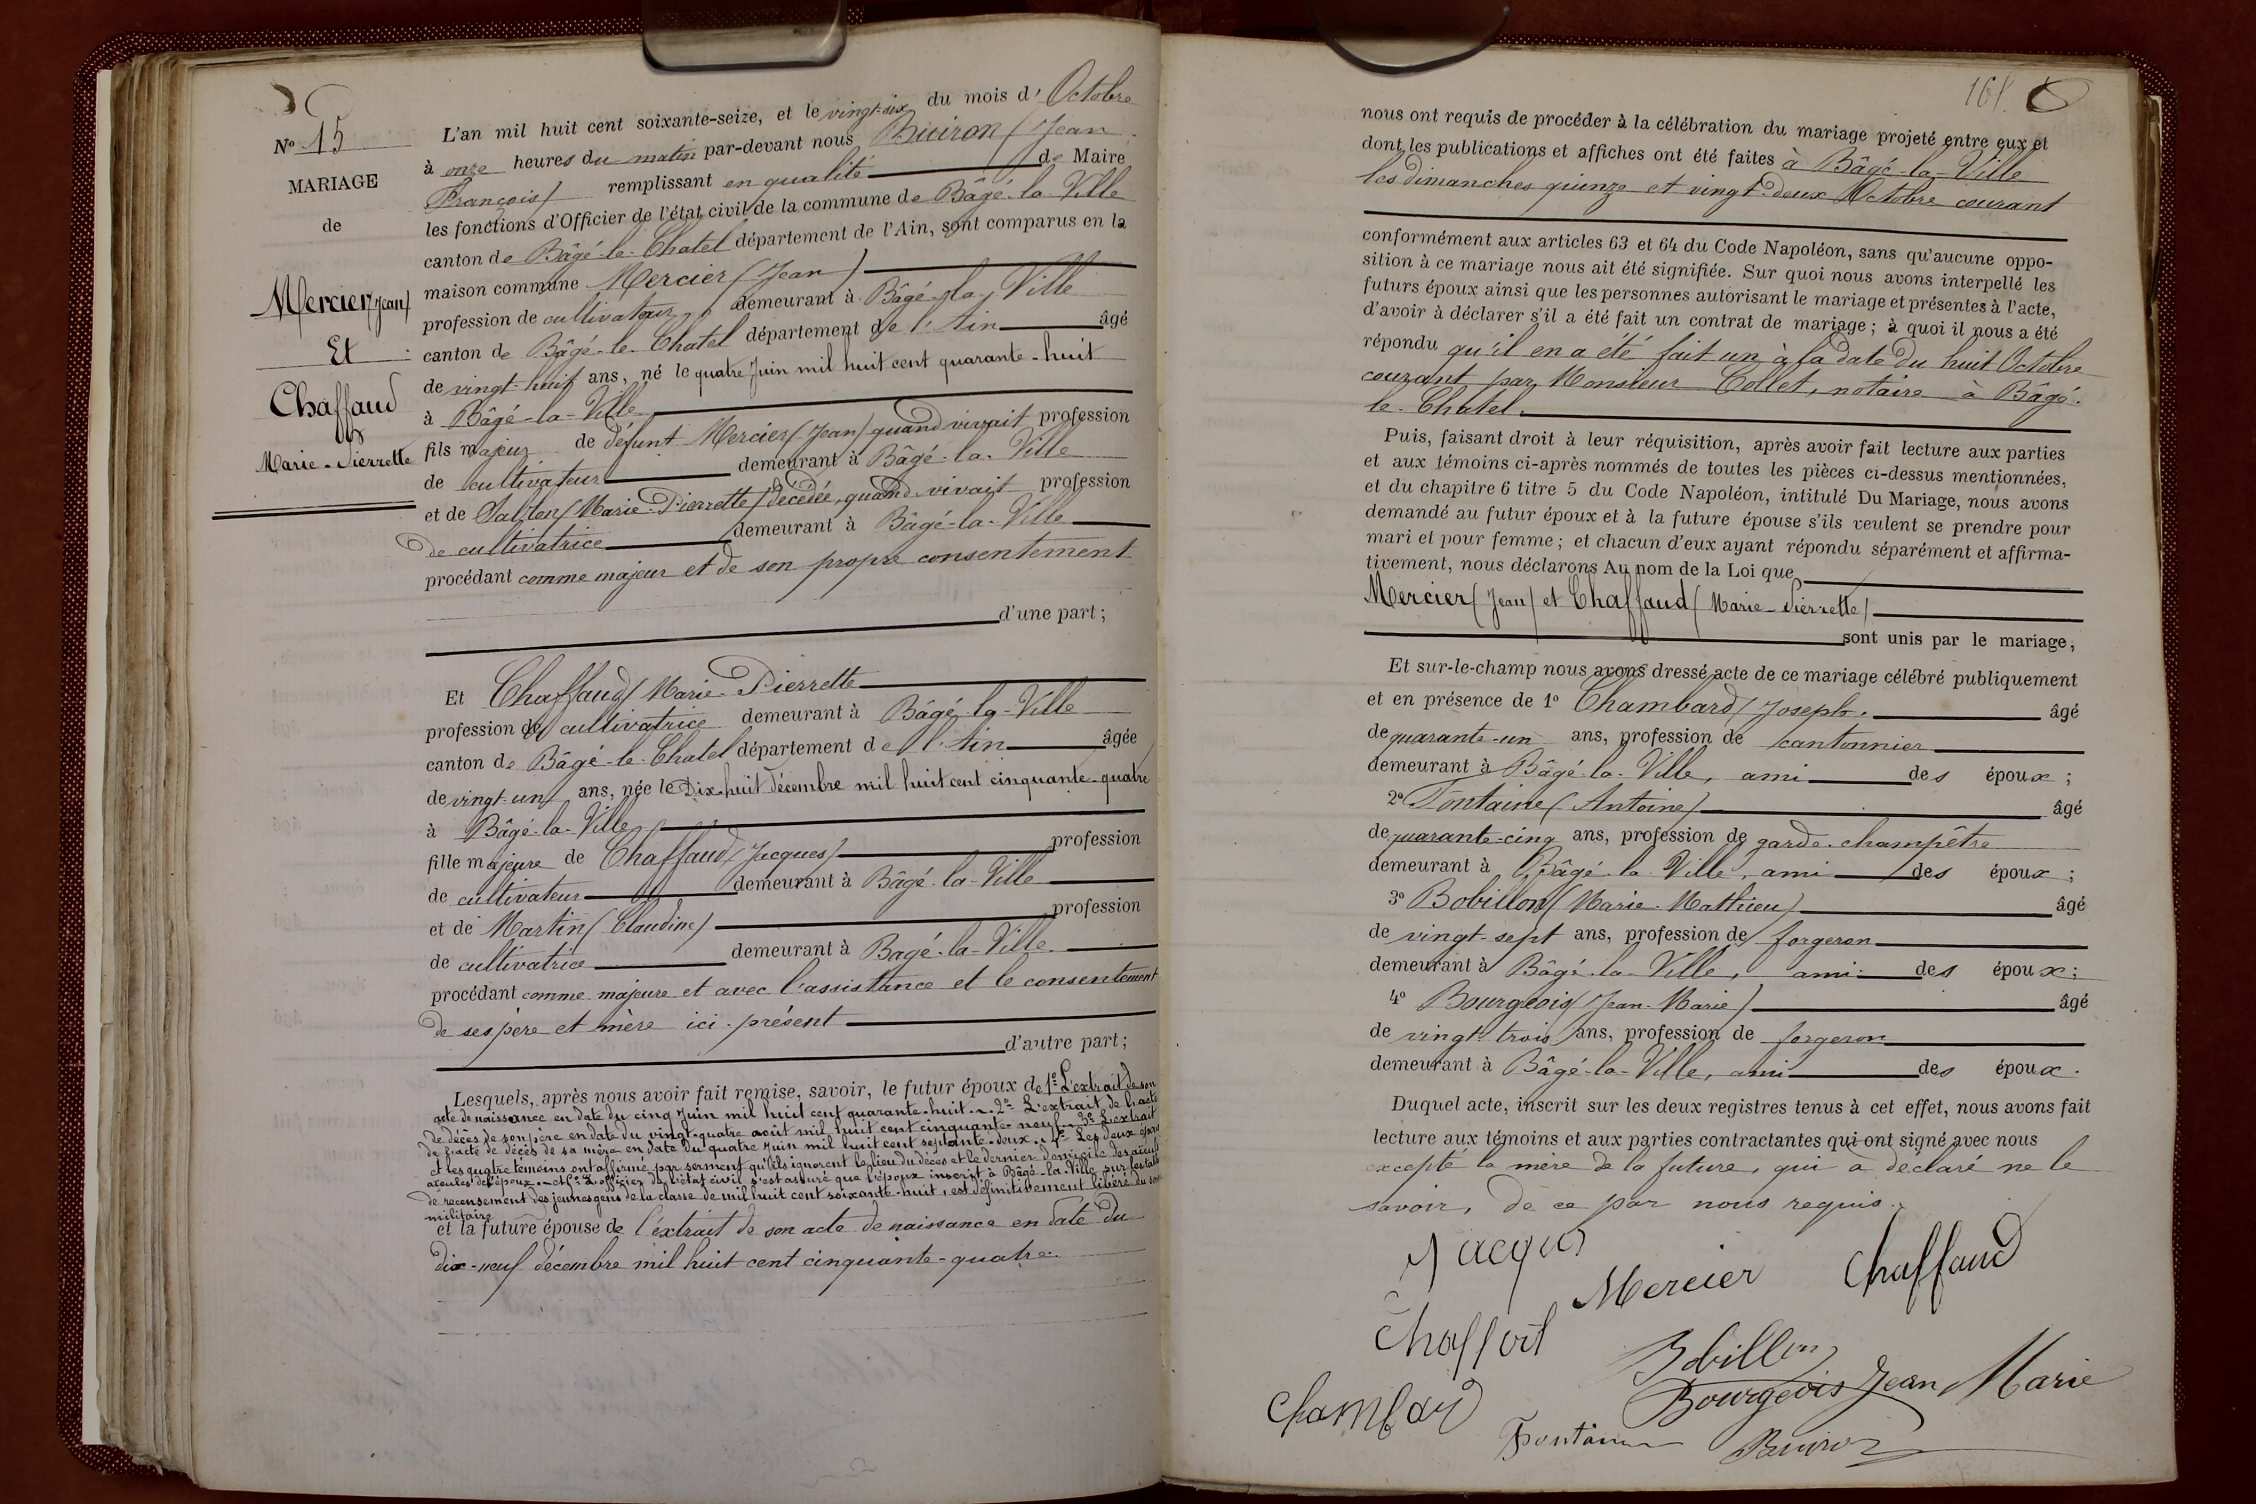 Nº 15
MARIAGE
de
Mercier (Jean)
Et
Chaffaud
Marie-Pierrette
L'an mil huit cent soixante-seize, et le vingt-six du mois d'Octobre
à onze heures du matin par-devant nous Buiron (Jean
François) remplissant en qualité de Maire
les fonctions d'Officier de l'état civil de la commune de Bâgé-la-Ville
canton de Bâgé-le-Chatel département de l'Ain, sont comparus en la
maison commune Mercier (Jean)
profession de cultivateur demeurant à Bâgé-la-Ville
canton de Bâgé-le-Chatel département de l'Ain âgé
de vingt-huit ans, né le quatre Juin mil huit cent quarante-huit
à Bâgé-la-Ville
fils majeur de défunt Mercier (Jean) quand vivait profession
de cultivateur demeurant à Bâgé-la-Ville
et de (Marie-Pierrette) décédée, quand vivait profession
de cultivatrice demeurant à Bâgé-la-Ville
procédant comme majeur et de son propre consentement
d'une part;
Et Chaffaud (Marie-Pierrette
profession de cultivatrice demeurant à Bâgé-la-Ville
canton de Bâgé-le-Chatel département de l'Ain âgée
de vingt-un ans, née le Dix-huit décembre mil huit cent cinquante-quatre
à Bâgé-la-Ville
fille majeure de Chaffaud (Jacques) profession
de cultivateur demeurant à Bâgé-la-Ville
et de Martin (Claudine) profession
de cultivatrice demeurant à Bagé-la-Ville
procédant comme majeure et avec l'assistance et le consentement
de ses père et mère ici présent
d'autre part;
Lesquels, après nous avoir fait remise, savoir, le futur époux de 1º L'extrait de son
acte de naissance en date du cinq Juin mil huit cent quarante-huit. 2º L'extrait de l'acte
de décès de son père en date du vingt-quatre août mil huit cent cinquante-neuf. 3º L'extrait
de l'acte de décès de sa mère en date du quatre Juin mil huit cent septante-deux. 4º Les deux époux
et les quatre témoins ont affirmé par serment qu'ils ignorent le lieu du décès et le dernier domicile des aïeuls
aïeules de l'époux. L'officier de l'état civil s'est assuré que l'époux inscrit à Bâgé-la-Ville sur les tabl
de recensement des jeunes gens de la classe de mil huit cent soixante-huit, est définitivement libéré du serv
militaire
et la future épouse de l'extrait de son acte de naissance en date du
dix-neuf décembre mil huit cent cinquante-quatre.
161.
nous ont requis de procéder à la célébration du mariage projeté entre eux et
dont les publications et affiches ont été faites à Bâgé-la-Ville
les dimanches quinze et vingt-deux Octobre courant
conformément aux articles 63 et 64 du Code Napoléon, sans qu'aucune oppo-
sition à ce mariage nous ait été signifiée. Sur quoi nous avons interpellé les
futurs époux ainsi que les personnes autorisant le mariage et présentes à l'acte,
d'avoir à déclarer s'il a été fait un contrat de mariage; à quoi il nous a été
répondu qu'il en a été fait un à la date du huit Octobre
courant par Monsieur Collet, notaire à Bâgé-
le-Chatel.
Puis, faisant droit à leur réquisition, après avoir fait lecture aux parties
et aux témoins ci-après nommés de toutes les pièces ci-dessus mentionnées,
et du chapitre 6 titre 5 du Code Napoléon, intitulé Du Mariage, nous avons
demandé au futur époux et à la future épouse s'ils veulent se prendre pour
mari et pour femme; et chacun d'eux ayant répondu séparément et affirma-
tivement, nous déclarons Au nom de la Loi que
Mercier (Jean) et Chaffaud (Marie-Pierrette)
sont unis par le mariage,
Et sur-le-champ nous avons dressé acte de ce mariage célébré publiquement
et en présence de 1º Chambard (Joseph. âgé
de quarante-un ans, profession de cantonnier
demeurant à Bâgé-la-Ville, ami des époux;
2º Fontaine (Antoine) âgé
de quarante-cinq ans, profession de garde-champêtre
demeurant à Bâgé-la-Ville, ami des époux;
3º Bobillon (Marie-Mathieu) âgé
de vingt-sept ans, profession de forgeron
demeurant à Bâgé-la-Ville, ami des époux;
4º Bourgeois (Jean-Marie) âgé
de vingt-trois ans, profession de forgeron
demeurant à Bâgé-la-Ville, ami des époux.
Duquel acte, inscrit sur les deux registres tenus à cet effet, nous avons fait
lecture aux témoins et aux parties contractantes qui ont signé avec nous
excepté la mère de la future, qui a déclaré ne le
savoir, de ce par nous requis.
Jacques
Mercier Chaffaud
Bobillon
Bourgeois Jean Marie
Chambard
Fontaine Buiron